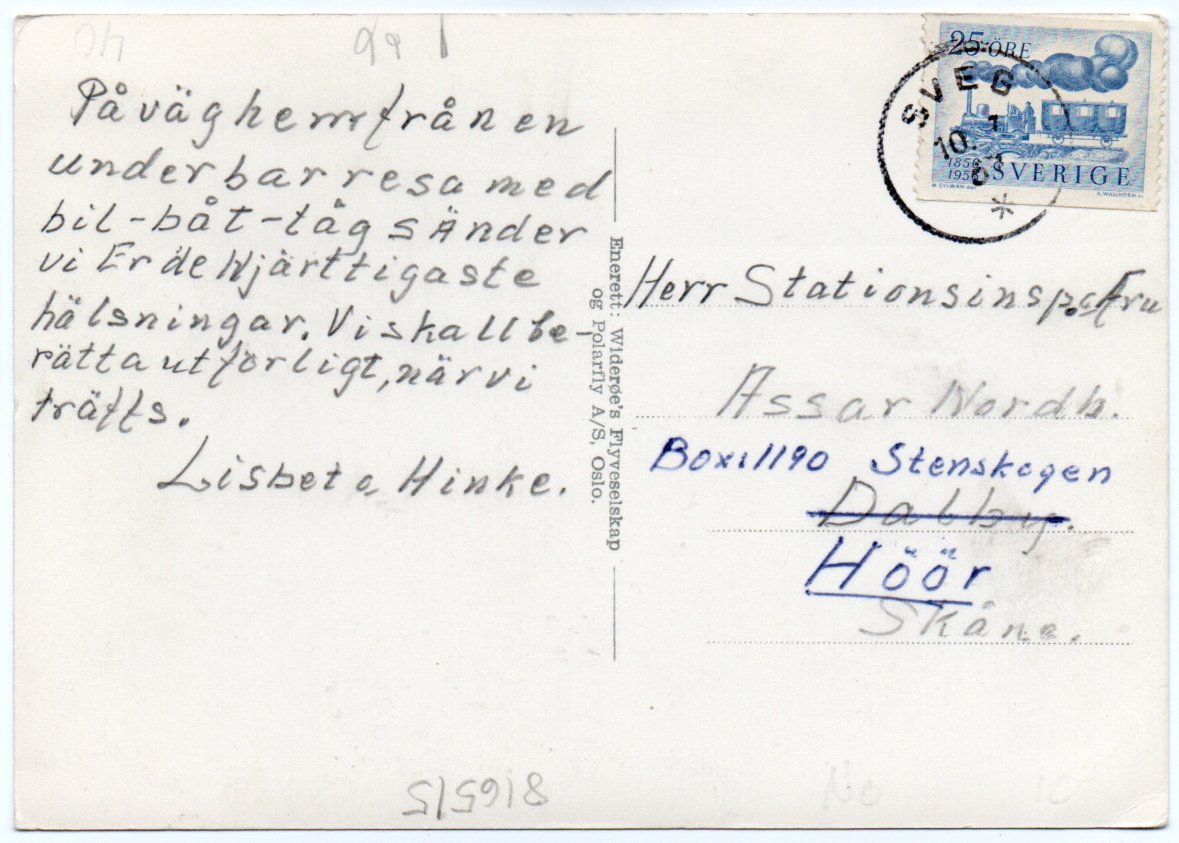 På väg hem från en
underbar resa med
bil-båt-tåg sÄnder
vi Er de Hjärttigaste
hälsningar. Vi skall be-
rätta utförligt, när vi
träffs.
Lisbet o Hinke.
Enerett: Widerøe's Flyveselskap
og Polarfly A/S, Oslo.
25 ÖRE
1856
1956 SVERIGE
SVEG
10. 7
Herr Stationsinsp. o Fru
Assar Nordh.
Box 1190 Stenskogen
Dalby.
Höör
Skåne.
8165/5